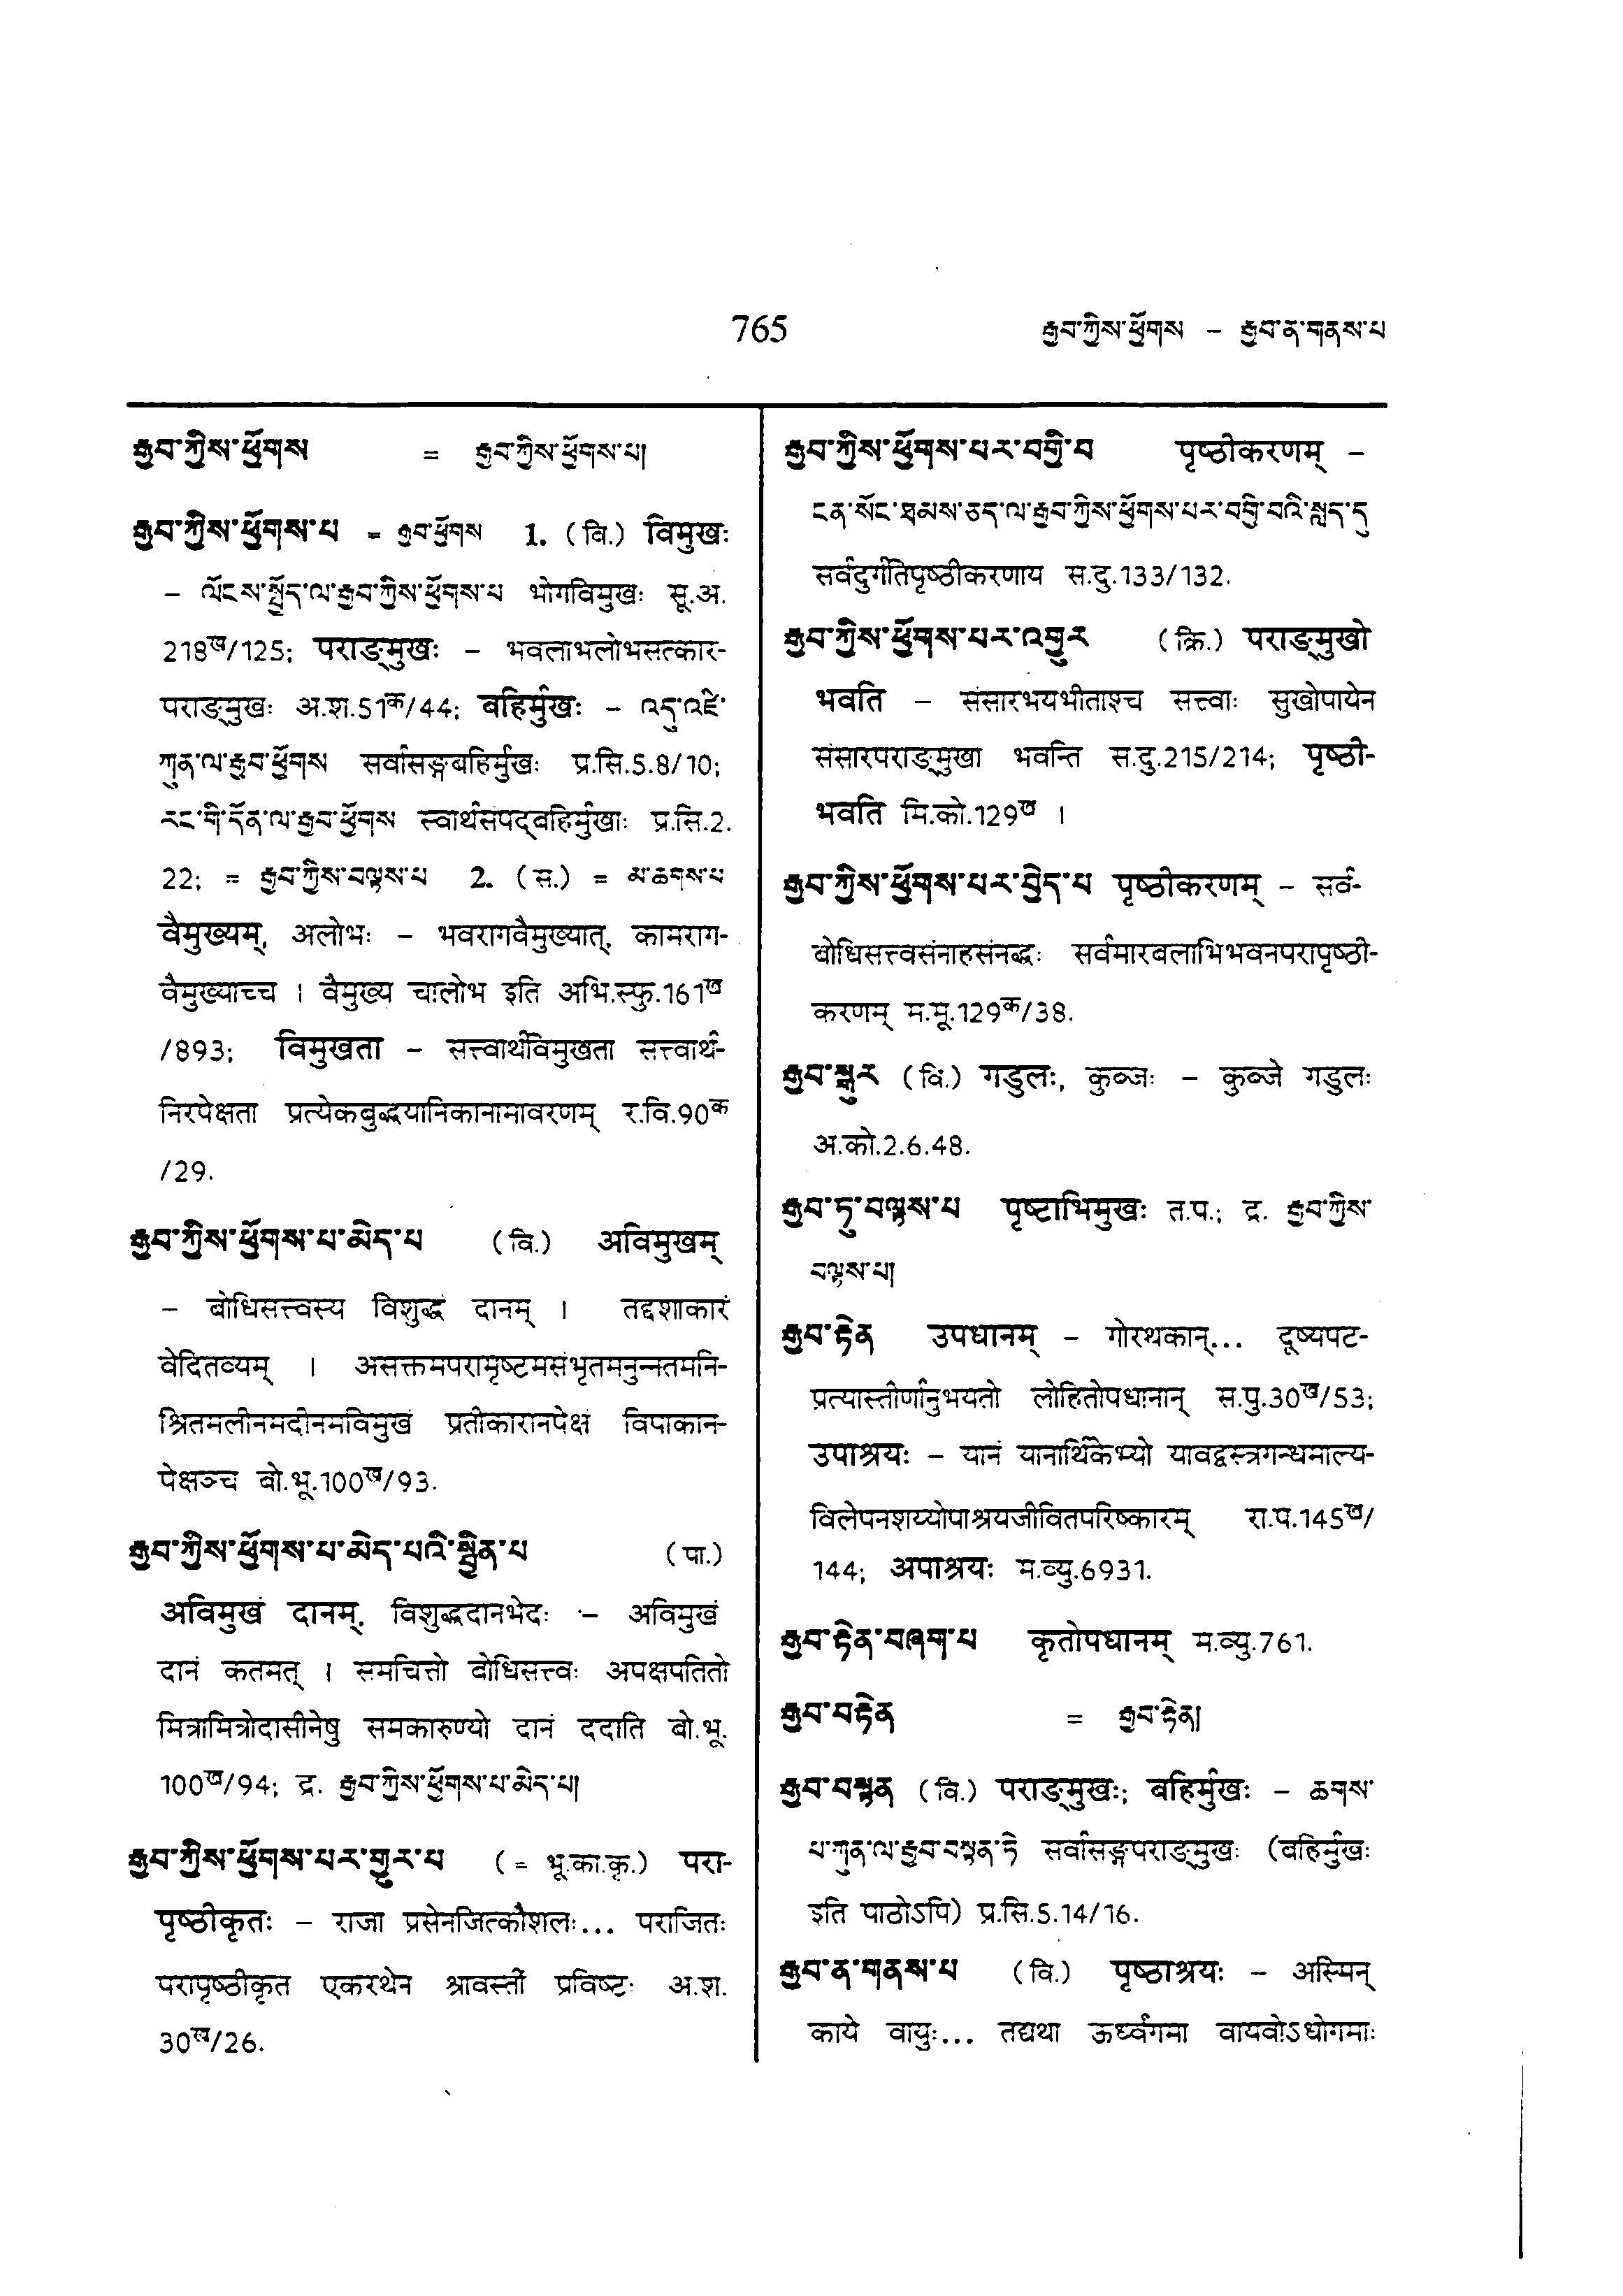 765 རྒྱབ་ཀྱིས་ཕྱོགས – རྒྱབ་ན་གནས་པ
རྒྱབ་ཀྱིས་ཕྱོགས = རྒྱབ་ཀྱིས་ཕྱོགས་པ།
རྒྱབ་ཀྱིས་ཕྱོགས་པ = རྒྱབ་ཕྱོགས 1. (वि.) विमुखः
– ལོངས་སྤྱོད་ལ་རྒྱབ་ཀྱིས་ཕྱོགས་པ भोगविमुखः सू.अ.
218ख/125; पराङ्मुखः – भवलाभलोभसत्कार-
पराङ्मुखः अ.श.51क/44; बहिर्मुखः – འདུ་འཛི་
ཀུན་ལ་རྒྱབ་ཕྱོགས सर्वासङ्गबहिर्मुखः प्र.सि.5.8/10;
རང་གི་དོན་ལ་རྒྱབ་ཕྱོགས स्वार्थसंपद्बहिर्मुखाः प्र.सि.2.
22; = རྒྱབ་ཀྱིས་བལྟས་པ 2. (सं.) = མ་ཆགས་པ
वैमुख्यम्, अलोभः – भवरागवैमुख्यात्, कामराग-
वैमुख्याच्च । वैमुख्य चालोभ इति अभि.स्फु.161ख
/893; विमुखता – सत्त्वार्थविमुखता सत्त्वार्थ-
निरपेक्षता प्रत्येकबुद्धयानिकानामावरणम् र.वि.90क
/29.
རྒྱབ་ཀྱིས་ཕྱོགས་པ་མེད་པ (वि.) अविमुखम्
– बोधिसत्त्वस्य विशुद्धं दानम् । तद्दशाकारं
वेदितव्यम् । असक्तमपरामृष्टमसंभृतमनुन्नतमनि-
श्रितमलीनमदीनमविमुखं प्रतीकारानपेक्षं विपाकान-
पेक्षञ्च बो.भू.100ख/93.
རྒྱབ་ཀྱིས་ཕྱོགས་པ་མེད་པའི་སྦྱིན་པ (पा.)
अविमुखं दानम्, विशुद्धदानभेदः – अविमुखं
दानं कतमत् । समचित्तो बोधिसत्त्वः अपक्षपतितो
मित्रामित्रोदासीनेषु समकारुण्यो दानं ददाति बो.भू.
100ख/94; द्र. རྒྱབ་ཀྱིས་ཕྱོགས་པ་མེད་པ།
རྒྱབ་ཀྱིས་ཕྱོགས་པར་གྱུར་པ (= भू.का.कृ.) परा-
पृष्ठीकृतः – राजा प्रसेनजित्कौशलः... पराजितः
परापृष्ठीकृत एकरथेन श्रावस्तीं प्रविष्टः अ.श.
30ख/26.
རྒྱབ་ཀྱིས་ཕྱོགས་པར་བགྱི་བ पृष्ठीकरणम् –
ངན་སོང་ཐམས་ཅད་ལ་རྒྱབ་ཀྱིས་ཕྱོགས་པར་བགྱི་བའི་སླད་དུ
सर्वदुर्गतिपृष्ठीकरणाय स.दु.133/132.
རྒྱབ་ཀྱིས་ཕྱོགས་པར་འགྱུར (क्रि.) पराङ्मुखो
भवति – संसारभयभीताश्च सत्त्वाः सुखोपायेन
संसारपराङ्मुखा भवन्ति स.दु.215/214; पृष्ठी-
भवति मि.को.129ख ।
རྒྱབ་ཀྱིས་ཕྱོགས་པར་བྱེད་པ पृष्ठीकरणम् – सर्व-
बोधिसत्त्वसंनाहसंनद्धः सर्वमारबलाभिभवनपरापृष्ठी-
करणम् म.मू.129क/38.
རྒྱབ་སྒུར (वि.) गडुलः, कुब्जः – कुब्जे गडुलः
अ.को.2.6.48.
རྒྱབ་ཏུ་བལྟས་པ पृष्टाभिमुखः त.प.; द्र. རྒྱབ་ཀྱིས་
བལྟས་པ།
རྒྱབ་རྟེན उपधानम् – गोरथकान्... दूष्यपट-
प्रत्यास्तीर्णानुभयतो लोहितोपधानान् स.पु.30ख/53;
उपाश्रयः – यानं यानार्थिकेभ्यो यावद्वस्त्रगन्धमाल्य-
विलेपनशय्योपाश्रयजीवितपरिष्कारम् रा.प.145ख/
144; अपाश्रयः म.व्यु.6931.
རྒྱབ་རྟེན་བཞག་པ कृतोपधानम् म.व्यु.761.
རྒྱབ་བརྟེན = རྒྱབ་རྟེན།
རྒྱབ་བསྟན (वि.) पराङ्मुखः; बहिर्मुखः – ཆགས་
པ་ཀུན་ལ་རྒྱབ་བསྟན་ཏེ सर्वासङ्गपराङ्मुखः (बहिर्मुखः
इति पाठोऽपि) प्र.सि.5.14/16.
རྒྱབ་ན་གནས་པ (वि.) पृष्ठाश्रयः – अस्मिन्
काये वायुः... तद्यथा ऊर्ध्वगमा वायवोऽधोगमाः